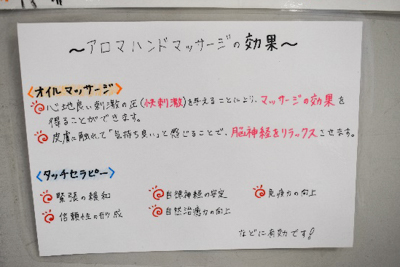 ～アロマハンドマッサージの効果～
<オイルマッサージ>
心地良い刺激の圧(快刺激)を与えることにより、マッサージの効果を
得ることができます。
皮膚に触れて"気持ち良い"と感じることで、脳神経をリラックスさせます。
<タッチセラピー>
緊張の緩和 自律神経の安定 免疫力の向上
信頼性の形成 自然治癒力の向上
などに有効です!